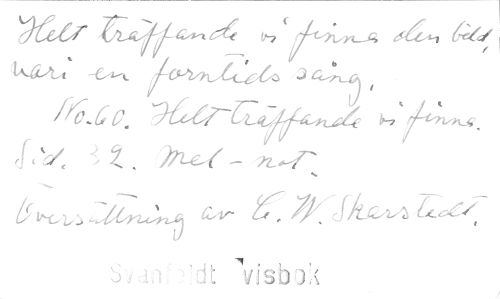 Helt träffande vi finna den bild,
vari en forntids sång.
No. 60. Helt träffande vi finna.
Sid. 32. Mel-not.
Översättning av C. W. Skarstedt.
Svanfeldt visbok